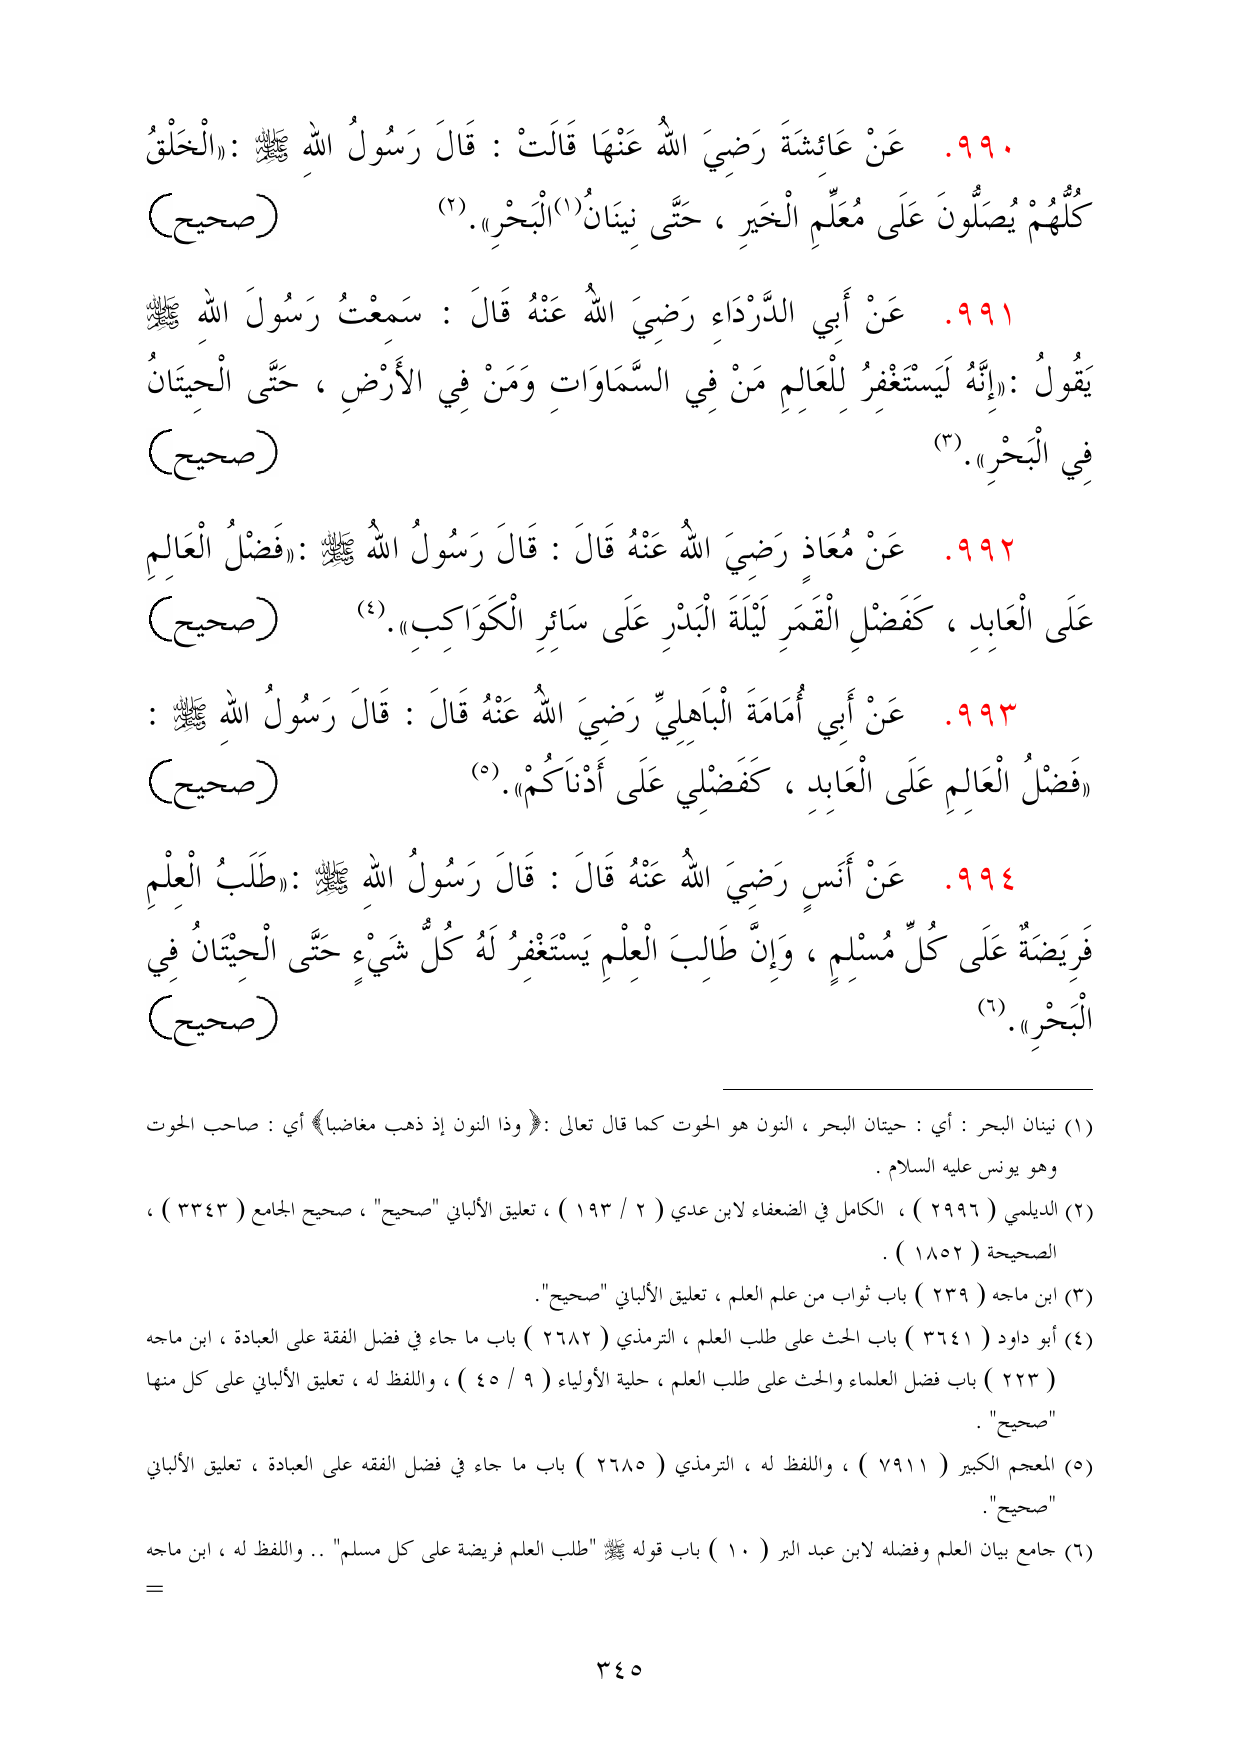 ٩٩٠. عَنْ عَائِشَةَ رَضِيَ اللهُ عَنْهَا قَالَتْ : قَالَ رَسُولُ اللهِ ﷺ :«الْخَلْقُ
كُلُّهُمْ يُصَلُّونَ عَلَى مُعَلِّمِ الْخَيرِ ، حَتَّى نِينَانُ(١)الْبَحْرِ».(٢) (صحيح)
٩٩١. عَنْ أَبِي الدَّرْدَاءِ رَضِيَ اللهُ عَنْهُ قَالَ : سَمِعْتُ رَسُولَ اللهِ ﷺ
يَقُولُ :«إِنَّهُ لَيَسْتَغْفِرُ لِلْعَالِمِ مَنْ فِي السَّمَاوَاتِ وَمَنْ فِي الأَرْضِ ، حَتَّى الْحِيتَانُ
فِي الْبَحْرِ».(٣) (صحيح)
٩٩٢. عَنْ مُعَاذٍ رَضِيَ اللهُ عَنْهُ قَالَ : قَالَ رَسُولُ اللهُ ﷺ :«فَضْلُ الْعَالِمِ
عَلَى الْعَابِدِ ، كَفَضْلِ الْقَمَرِ لَيْلَةَ الْبَدْرِ عَلَى سَائِرِ الْكَوَاكِبِ».(٤) (صحيح)
٩٩٣. عَنْ أَبِي أُمَامَةَ الْبَاَهِلِيِّ رَضِيَ اللهُ عَنْهُ قَالَ : قَالَ رَسُولُ اللهِ ﷺ :
«فَضْلُ الْعَالِمِ عَلَى الْعَابِدِ ، كَفَضْلِي عَلَى أَدْنَاَكُمْ».(٥) (صحيح)
٩٩٤. عَنْ أَنَسٍ رَضِيَ اللهُ عَنْهُ قَالَ : قَالَ رَسُولُ اللهِ ﷺ :«طَلَبُ الْعِلْمِ
فَرِيَضَةٌ عَلَى كُلِّ مُسْلِمٍ ، وَإِنَّ طَالِبَ الْعِلْمِ يَسْتَغْفِرُ لَهُ كُلُّ شَيْءٍ حَتَّى الْحِيْتَانُ فِي
الْبَحْرِ».(٦) (صحيح)
(١) نينان البحر : أي : حيتان البحر ، النون هو الحوت كما قال تعالى :﴿ وذا النون إذ ذهب مغاضبا﴾ أي : صاحب الحوت
وهو يونس عليه السلام .
(٢) الديلمي ( ٢٩٩٦ ) ، الكامل في الضعفاء لابن عدي ( ٢ / ١٩٣ ) ، تعليق الألباني "صحيح" ، صحيح الجامع ( ٣٣٤٣ ) ،
الصحيحة ( ١٨٥٢ ) .
(٣) ابن ماجه ( ٢٣٩ ) باب ثواب من علم العلم ، تعليق الألباني "صحيح".
(٤) أبو داود ( ٣٦٤١ ) باب الحث على طلب العلم ، الترمذي ( ٢٦٨٢ ) باب ما جاء في فضل الفقة على العبادة ، ابن ماجه
( ٢٢٣ ) باب فضل العلماء والحث على طلب العلم ، حلية الأولياء ( ٩ / ٤٥ ) ، واللفظ له ، تعليق الألباني على كل منها
"صحيح" .
(٥) المعجم الكبير ( ٧٩١١ ) ، واللفظ له ، الترمذي ( ٢٦٨٥ ) باب ما جاء في فضل الفقه على العبادة ، تعليق الألباني
"صحيح".
(٦) جامع بيان العلم وفضله لابن عبد البر ( ١٠ ) باب قوله ﷺ "طلب العلم فريضة على كل مسلم" .. واللفظ له ، ابن ماجه
=
٣٤٥